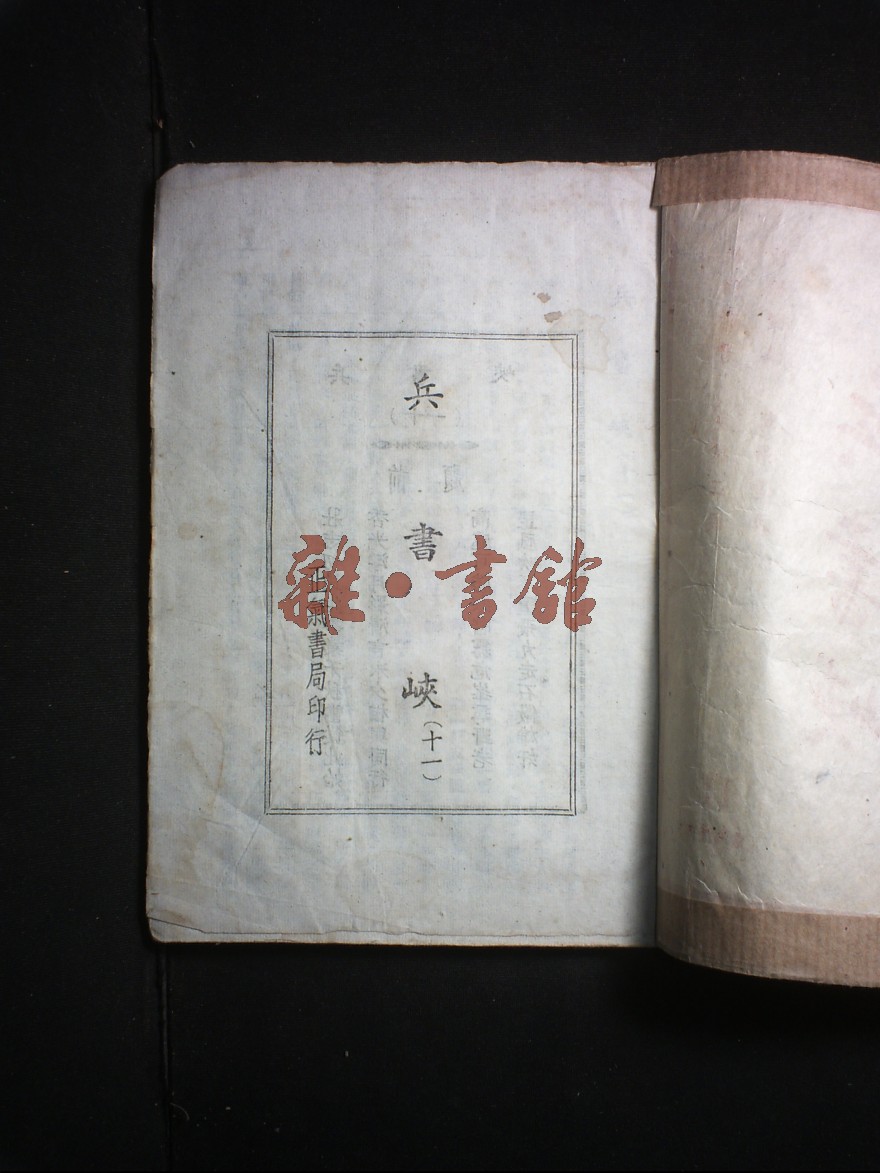 兵書峽(十一)
正氣書局印行
雜·書館